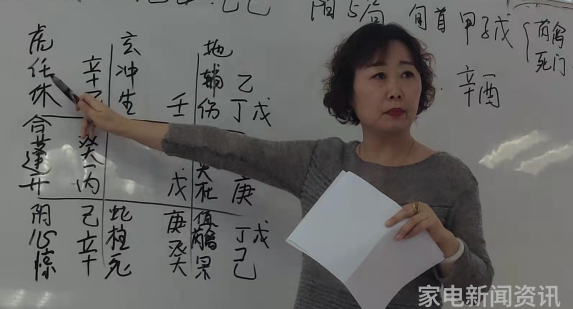 5局 旬首 甲子戊
芮禽
死门
辛酉
虎 玄 地
任 辛 冲 辅 乙
休 生 壬 伤 丁戊
合 癸
蓬
开 丙 戊 庚
阴 己 蛇 庚 值 丁戊
心 辛 柱 癸 芮禽 己
惊 死
家电新闻资讯